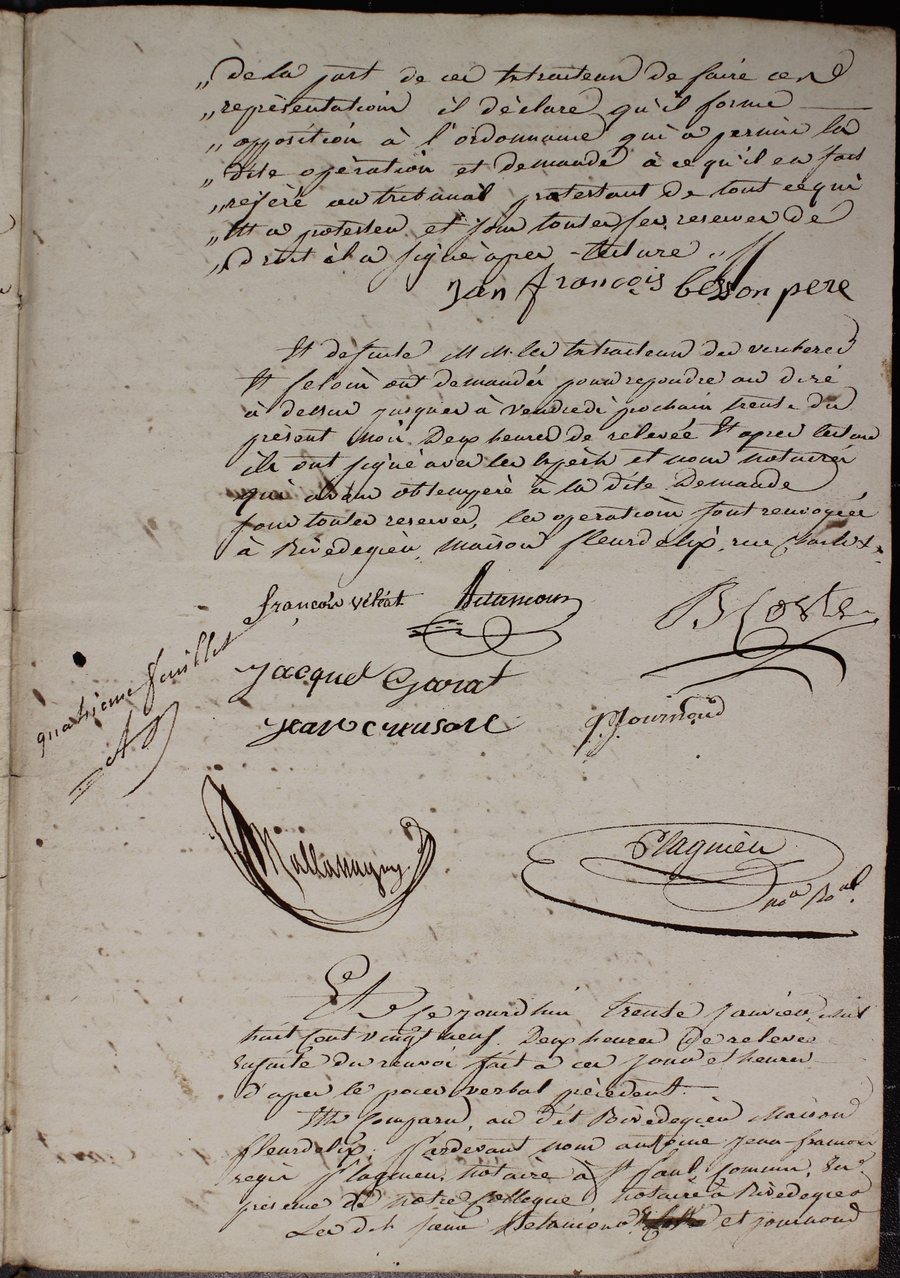 „ de la part de ces extracteurs de faire cette
„ représentation il déclare qu'il forme
„ opposition à l'ordonnance qui a permis la
„ dite opération et demande à ce qu'il en soit
„ référé au tribunal protestant de tout ce qui
„ est a protester et sous toutes ses reserves de
„ droit il a signé après lecture „
Jan françois besson pere
Et de suite MM. les extracteurs du
et ont demandés pour repondre au dire
à dessus jusques à vendredi prochain trente du
présent mois Deux heures de relevée Et après lecture
ils ont signé avec les experts et nous notaires
qui avons obtempéré à la dite Demande
sous toutes reserves, les operations sont renvoyées
à Rivedegier, Maison fleurdelix, rue
françois vétat B Coste
quatrieme feuillet
Jacque Garat
Jean creusore Journoud
Plagnieu
nore Roal
Et Ce jourdhui trente Janvier mil
huit Cent vingt neuf. Deux heures De relevée
Ensuite du renvoi fait a ces jour et heures
d'apres le proces verbal précédent.
Ont Comparu, au dit Rivedegier Maison
fleurdelix. Pardevant nous antoine Jean francois
regis Plagnieu, notaire à St Paul
présence de notre Collegue notaire à Rivedegier
Les dits sieurs et journoud